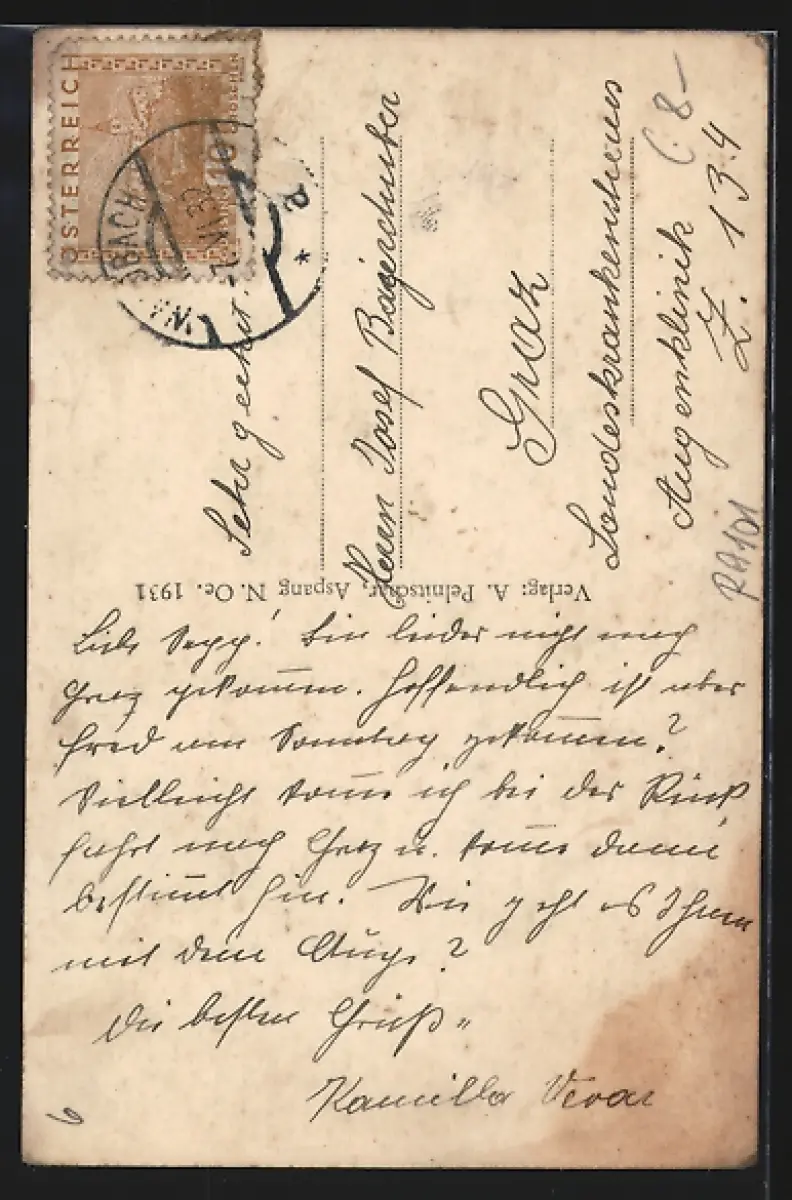 ÖSTERREICH
10 GROSCHEN
BACH
VI.32
a *
Sehr geehrt.
Herrn Josef
Graz
Landeskrankenhaus
Augenklinik
Z. 134
( 8-
RA101
Verlag: A. Pelnitschar, Aspang N. Oe. 1931
Liebe Sepp! Bin leider nicht nach
Graz gekommen. Hoffendlich ist aber
Fred am Sonntag gekommen?
Vielleicht komme ich bei der Rück
fahrt nach Graz u. komme dann
bestimmt hin. Wie geht es Ihnen
mit dem Auge?
Die besten Grüße
Kamilla